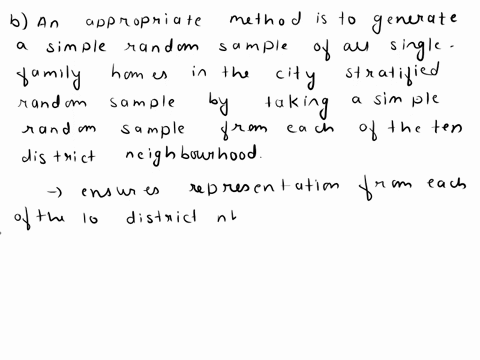 b) An appropriate method is to generate
a simple random sample of all single-
family homes in the city stratified
random sample by taking a simple
random sample from each of the ten
district neighbourhood.
→ ensures representation from each
of the 10 district n